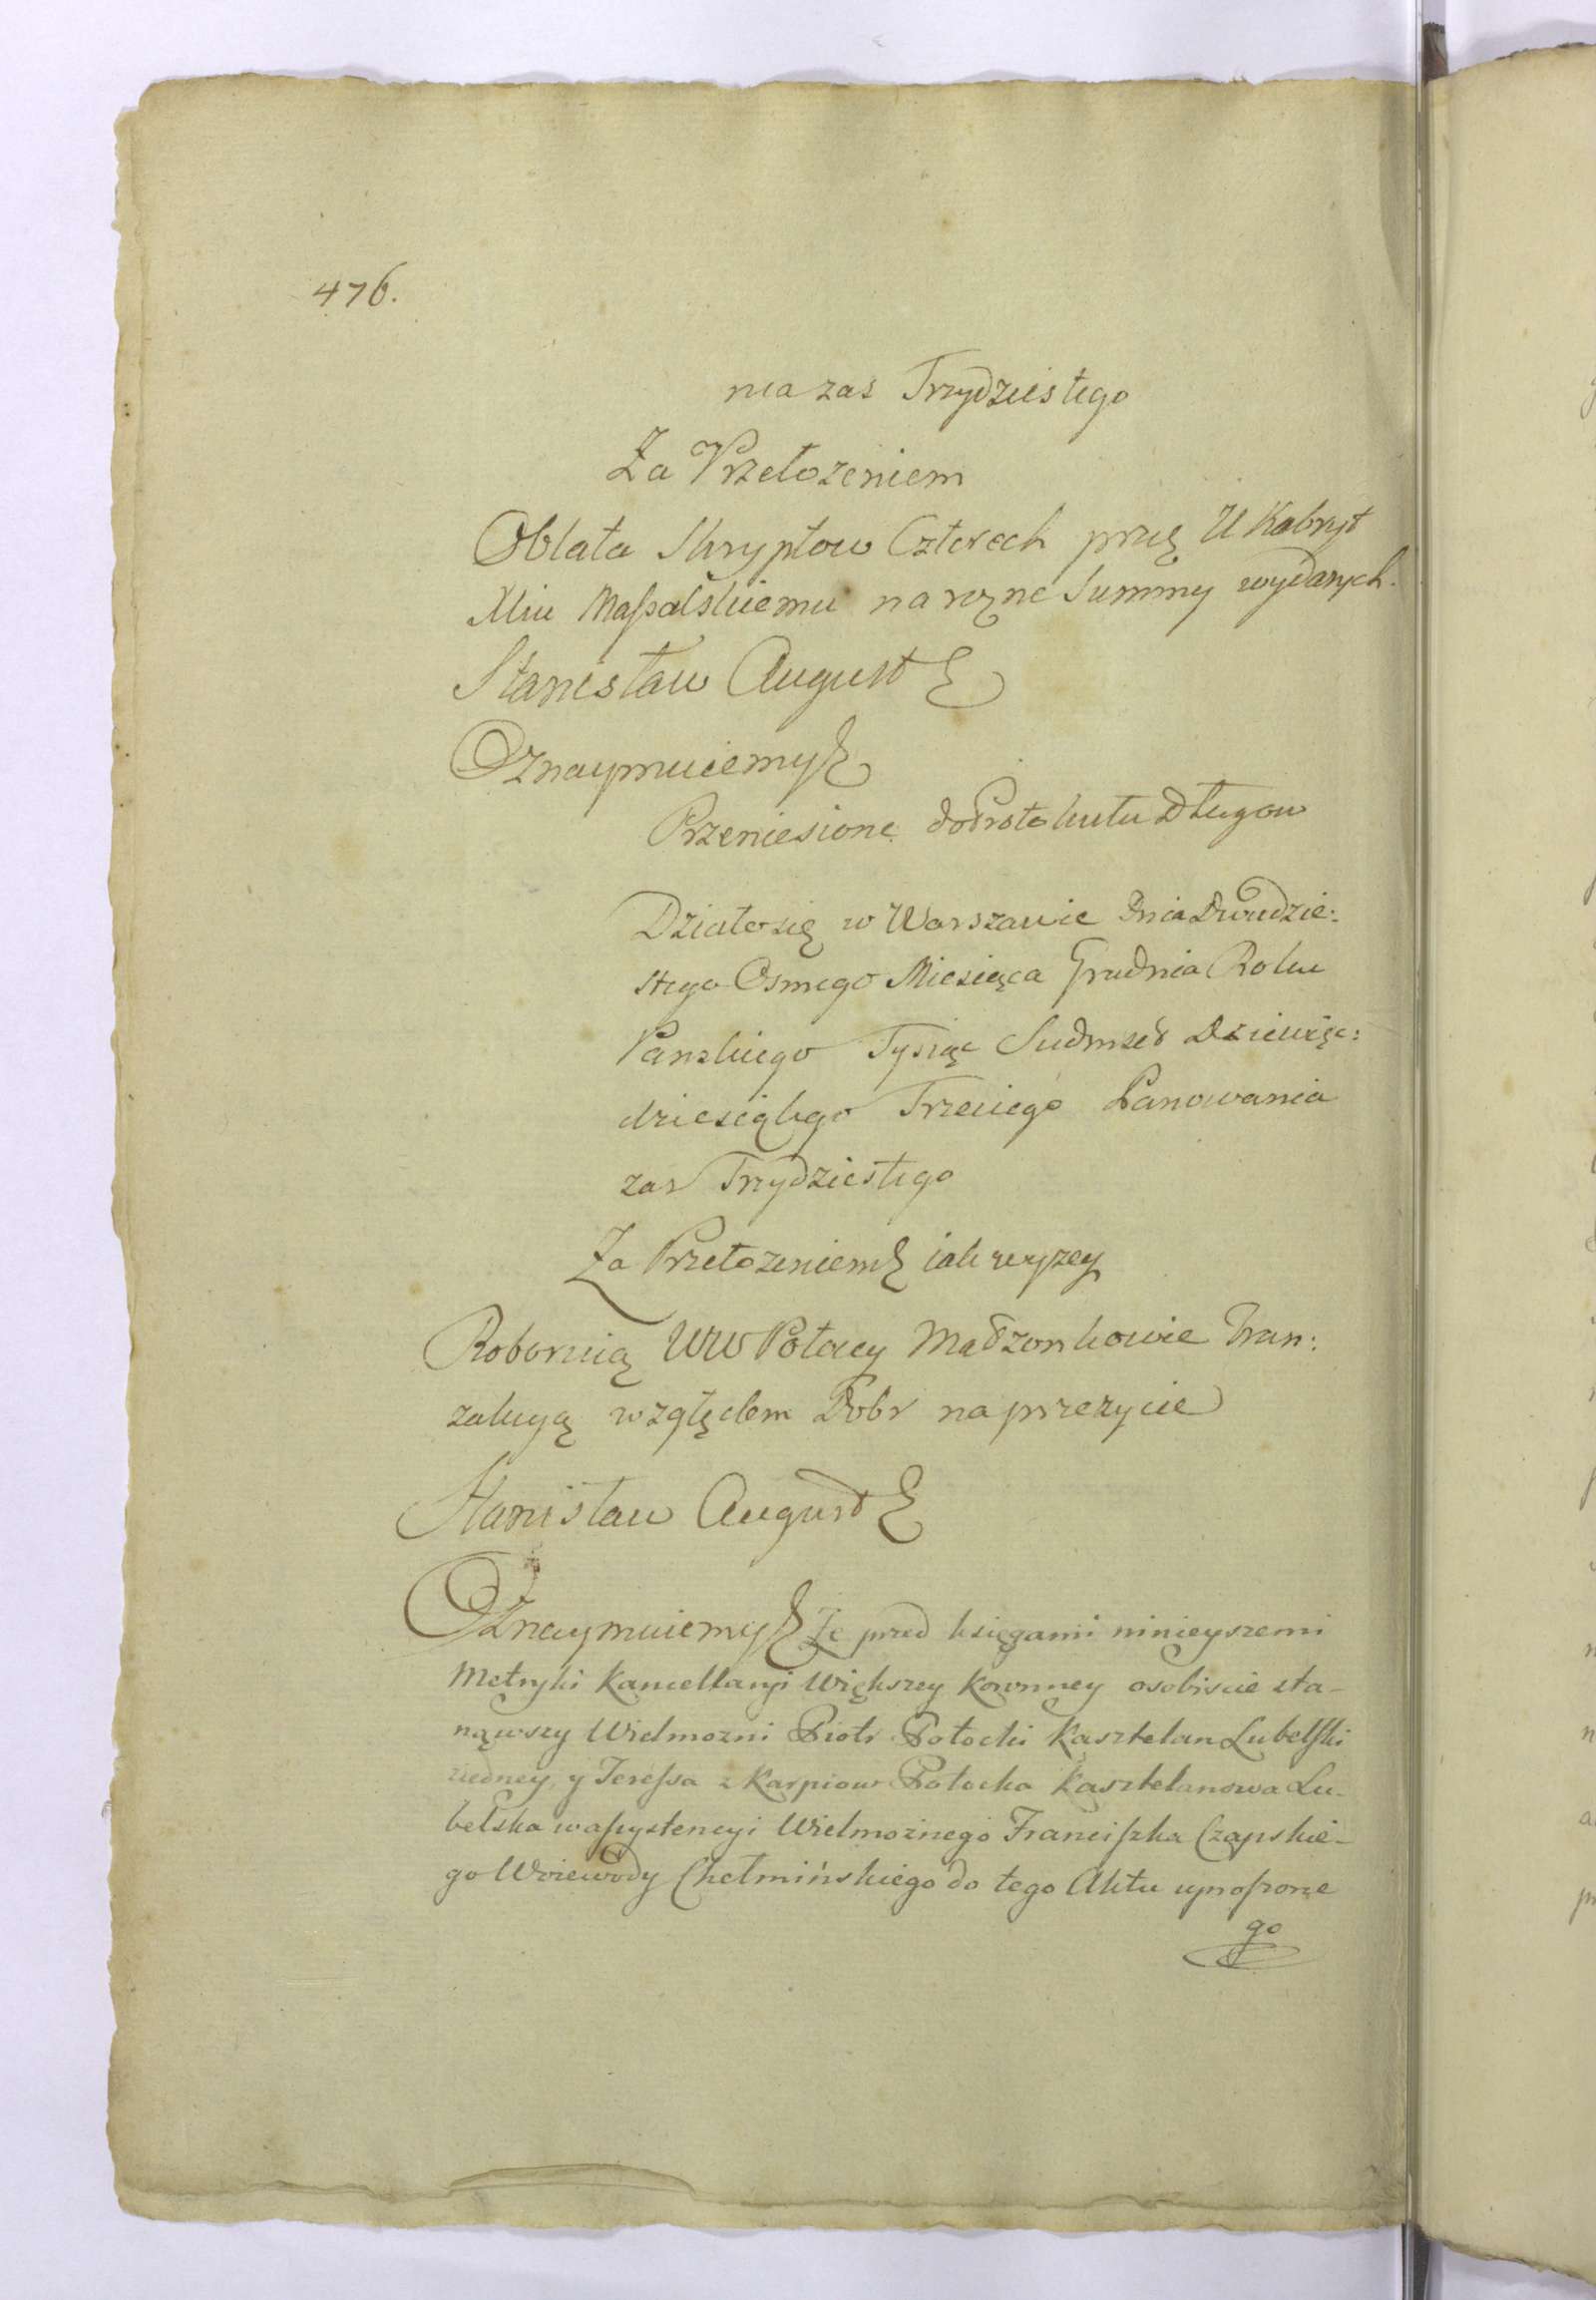 476.
nia zas Trzydziestego
Za Przełozeniem
Oblata Skryptow Czterech przez U Kabryt
Xciu Maſsalskiemu na rozne Summy wydanych.
Stanisław August
Oznaymuiemy
Przeniesione do Protokułu Długow
Działo się w Warszawie Dnia Dwudzie:
stego Osmego Miesiąca Grudnia Roku
Panskiego Tysiąc Siedmset Dziewięc:
dziesiątego Trzeciego Panowania
zas Trzydziestego
Za Przełozeniem iak wyzey
Roboruią WW Potoccy Małzonkowie Tran:
zakcyą względem Dobr na przezycie
Stanisław August
Oznaymuiemy Że przed księgami ninieyszemi
Metryki Kancellaryi Większey Koronney osobiscie sta-
nąwszy Wielmozni Piotr Potocki Kasztelan Lubelſki
z iedney, y Tereſsa z Karpiow Potocka Kasztelanowa Lu-
belska w aſsystencyi Wielmożnego Franciſzka Czapskie-
go Woiewody Chełmińskiego do tego Aktu uproſzone
go